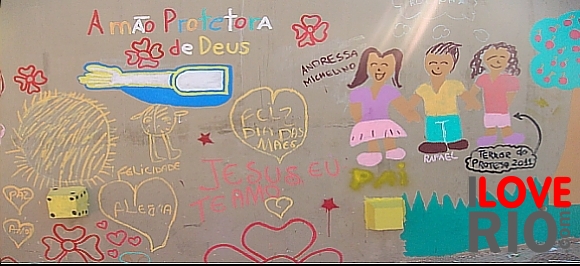 A mão Protetora
de Deus
ANDRESSA
MICHELINO
FELIZ
DIA DAS
MÃES
FELICIDADE
JESUS EU
TE AMO
RAFAEL
PAI
PAZ
Amor
ALEGRIA
2011
I LOVE
RIO
.com